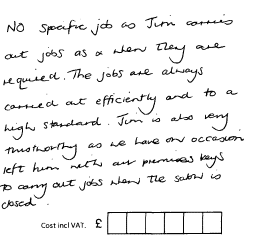 NO specific job as Jim carries
out jobs as & when they are
required. The jobs are always
carried out efficiently and to a
high standard. Jim is also very
trustworthy as we have on occasion
left him with our premises keys
to carry out jobs when the salon is
closed.
Cost incl VAT. £